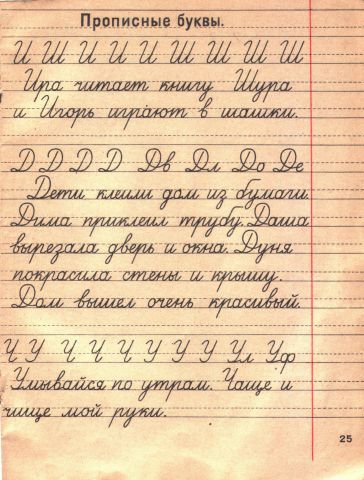 Прописные буквы.
И Ш И И И Ш Ш Ш Ш
Ира читает книгу Шура
и Игорь играют в шашки.
Д Д Д Д Дв Дл До Де
Дети клеили дом из бумаги.
Дима приклеил трубу. Даша
вырезала дверь и окна. Дуня
покрасила стены и крышу.
Дом вышел очень красивый.
Ч У Ч Ч Ч У У У Ул Уф
Умывайся по утрам. Чаще и
чище мой руки.
25